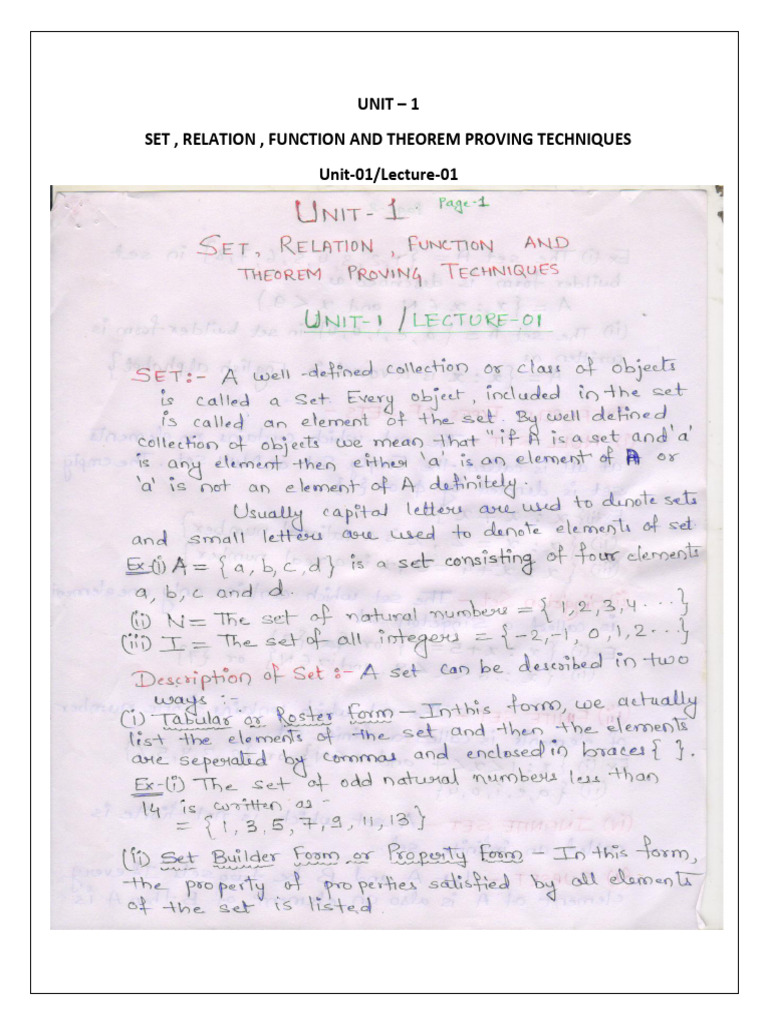 UNIT – 1
SET , RELATION , FUNCTION AND THEOREM PROVING TECHNIQUES
Unit-01/Lecture-01
UNIT-1 Page-1
SET, RELATION, FUNCTION AND
THEOREM PROVING TECHNIQUES
UNIT-1 / LECTURE-01
SET:- A well-defined collection or class of objects
is called a Set. Every object, included in the set
is called an element of the set. By well defined
collection of objects we mean that "if A is a set and 'a'
is any element then either 'a' is an element of A or
'a' is not an element of A definitely.
Usually capital letters are used to denote sets
and small letters are used to denote elements of set
Ex-(i) A = {a, b, c, d} is a set consisting of four elements
a, b, c and d.
(ii) N = The set of natural numbers = {1, 2, 3, 4 ....}
(iii) I = The set of all integers = {-2, -1, 0, 1, 2 ...}
Description of Set :- A set can be described in two
ways :-
(i) Tabular or Roster form – In this form, we actually
list the elements of the set and then the elements
are seperated by commas and enclosed in braces { }.
Ex-(i) The set of odd natural numbers less than
14 is written as -
= {1, 3, 5, 7, 9, 11, 13}
(ii) Set Builder Form or Property Form – In this form,
the property of properties satisfied by all elements
of the set is listed.